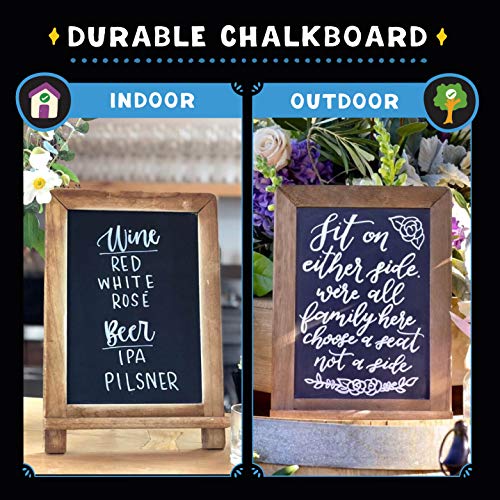 DURABLE CHALKBOARD
INDOOR
OUTDOOR
Wine
RED
WHITE
ROSÉ
Beer
IPA
PILSNER
Sit on
either side.
we're all
family here
choose a seat
not a side